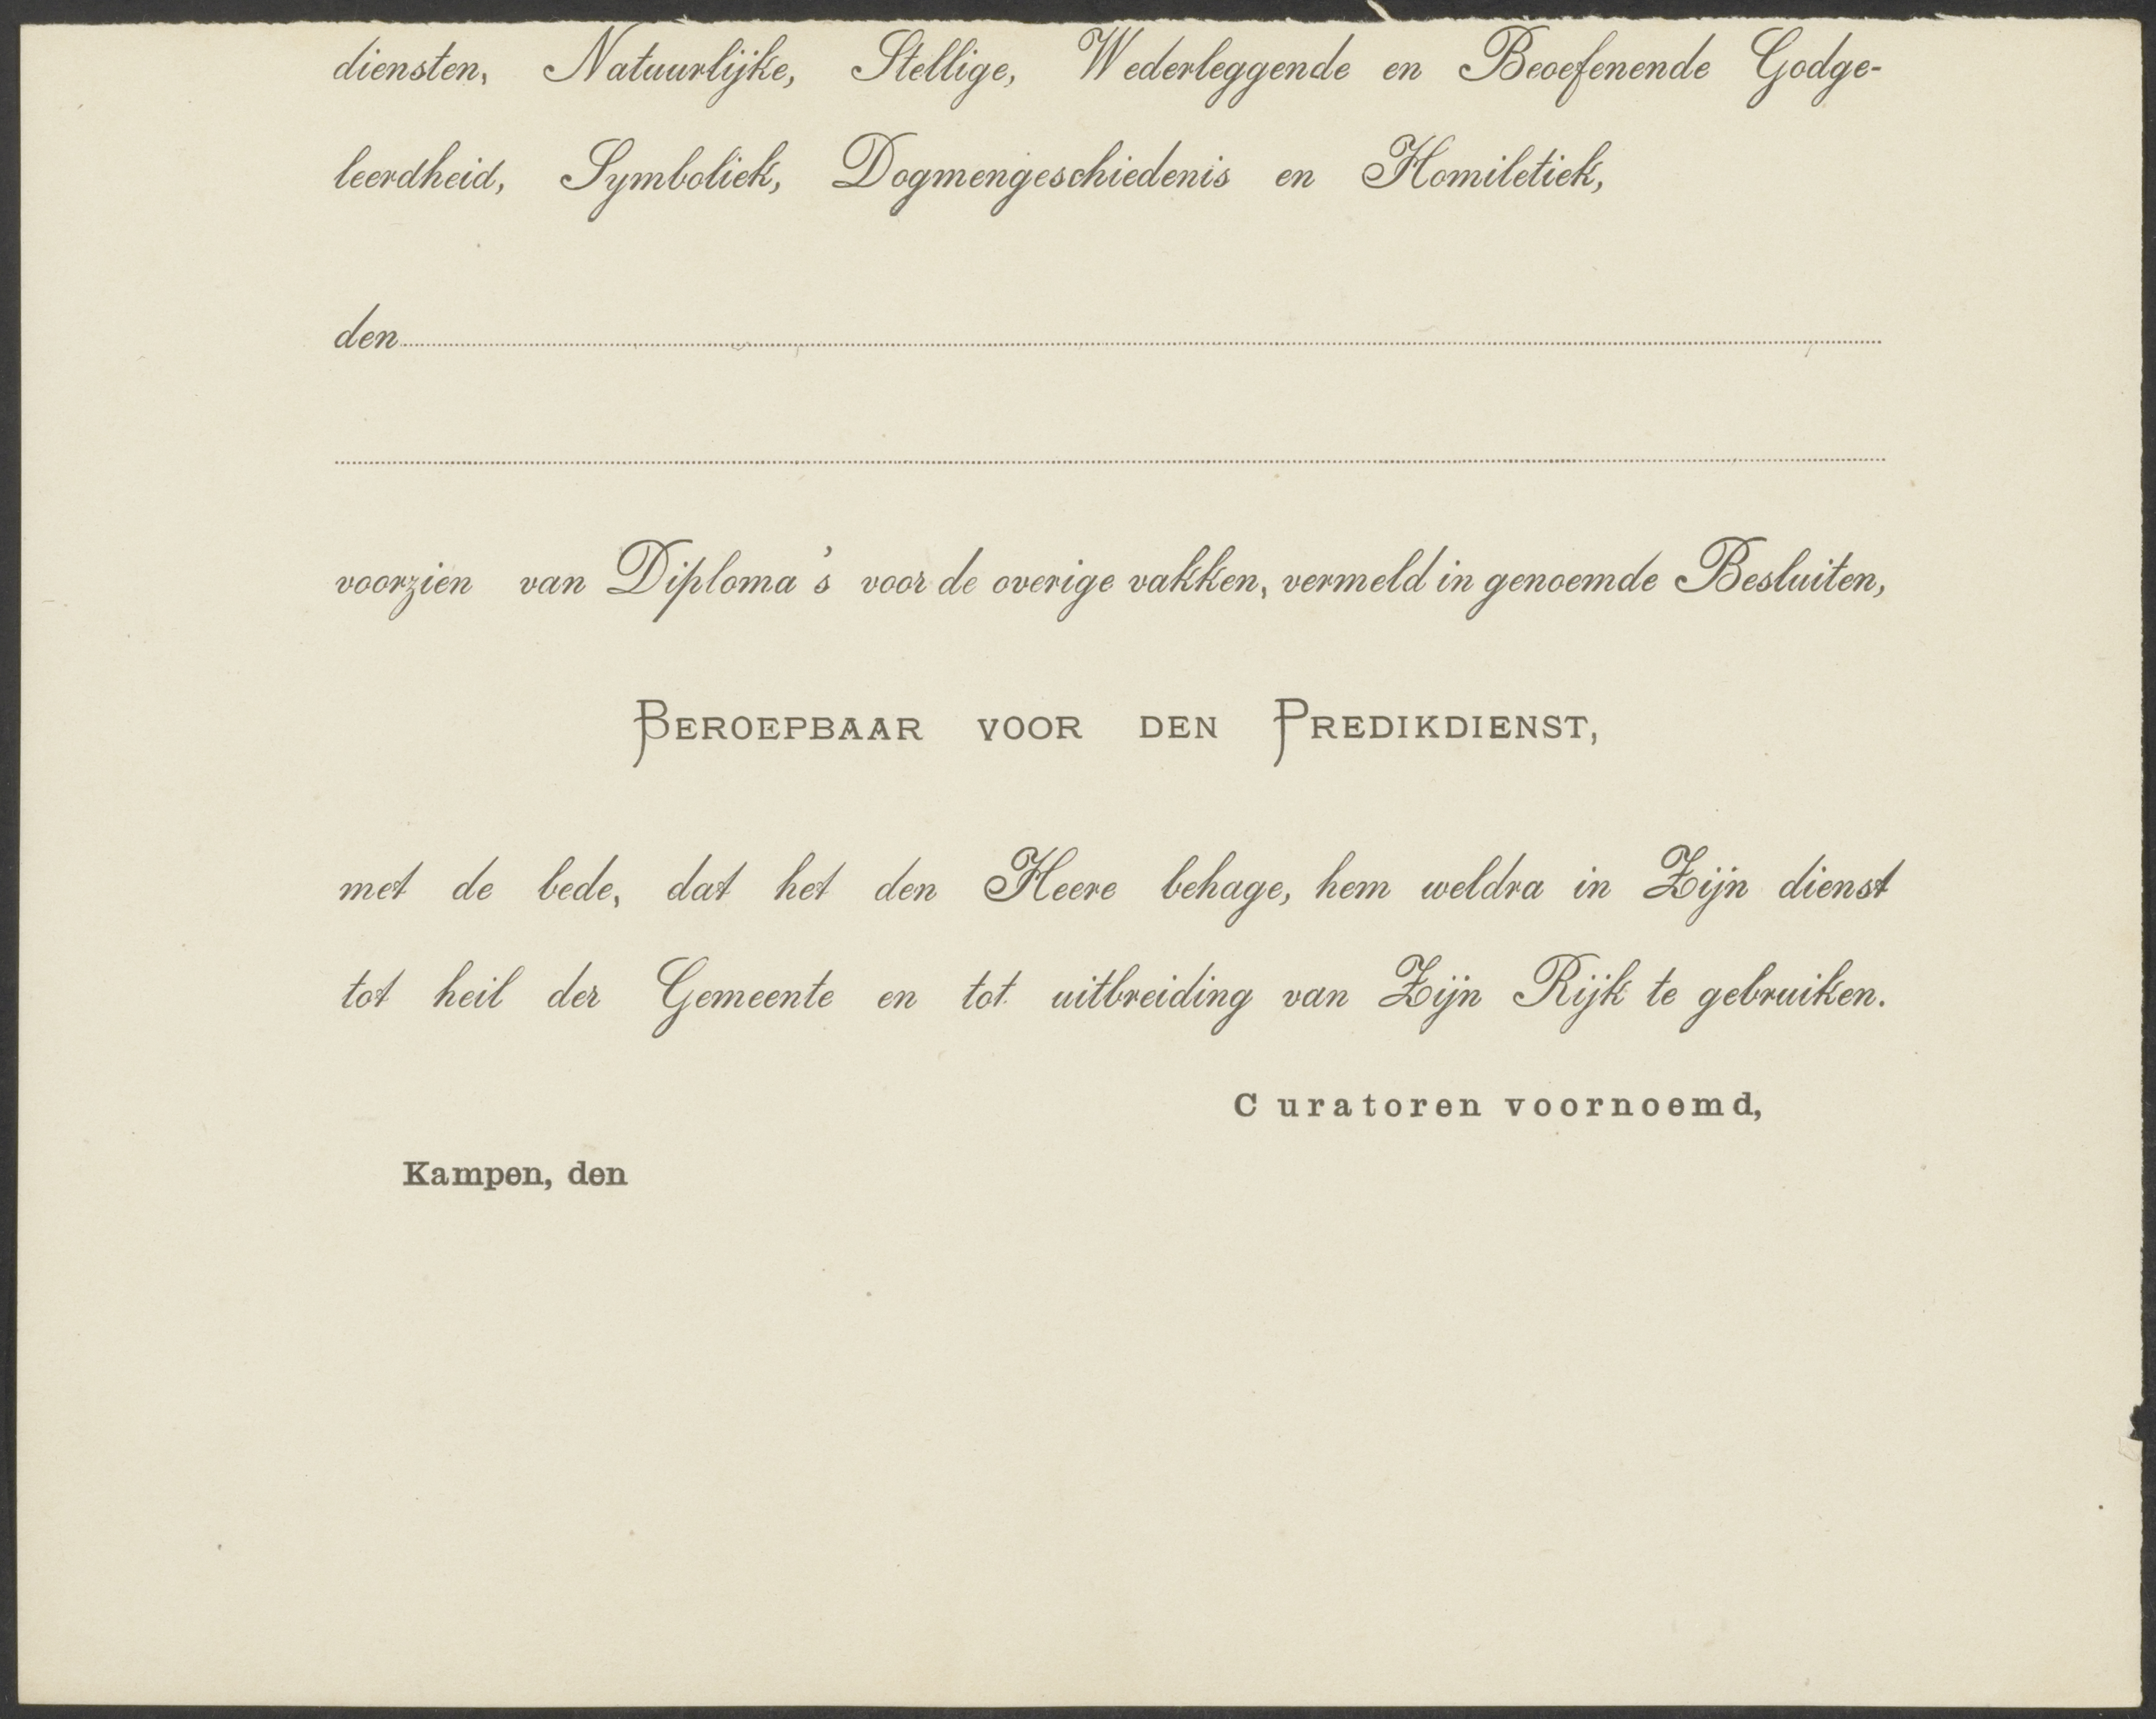 diensten, Natuurlijke, Stellige, Wederleggende en Beoefenende Godge-
leerdheid, Symboliek, Dogmengeschiedenis en Homiletiek,
den
voorzien van Diploma's voor de overige vakken, vermeld in genoemde Besluiten,
BEROEPBAAR VOOR DEN PREDIKDIENST,
met de bede, dat het den Heere behage, hem weldra in Zijn dienst
tot heil der Gemeente en tot uitbreiding van Zijn Rijk te gebruiken.
Curatoren voornoemd,
Kampen, den